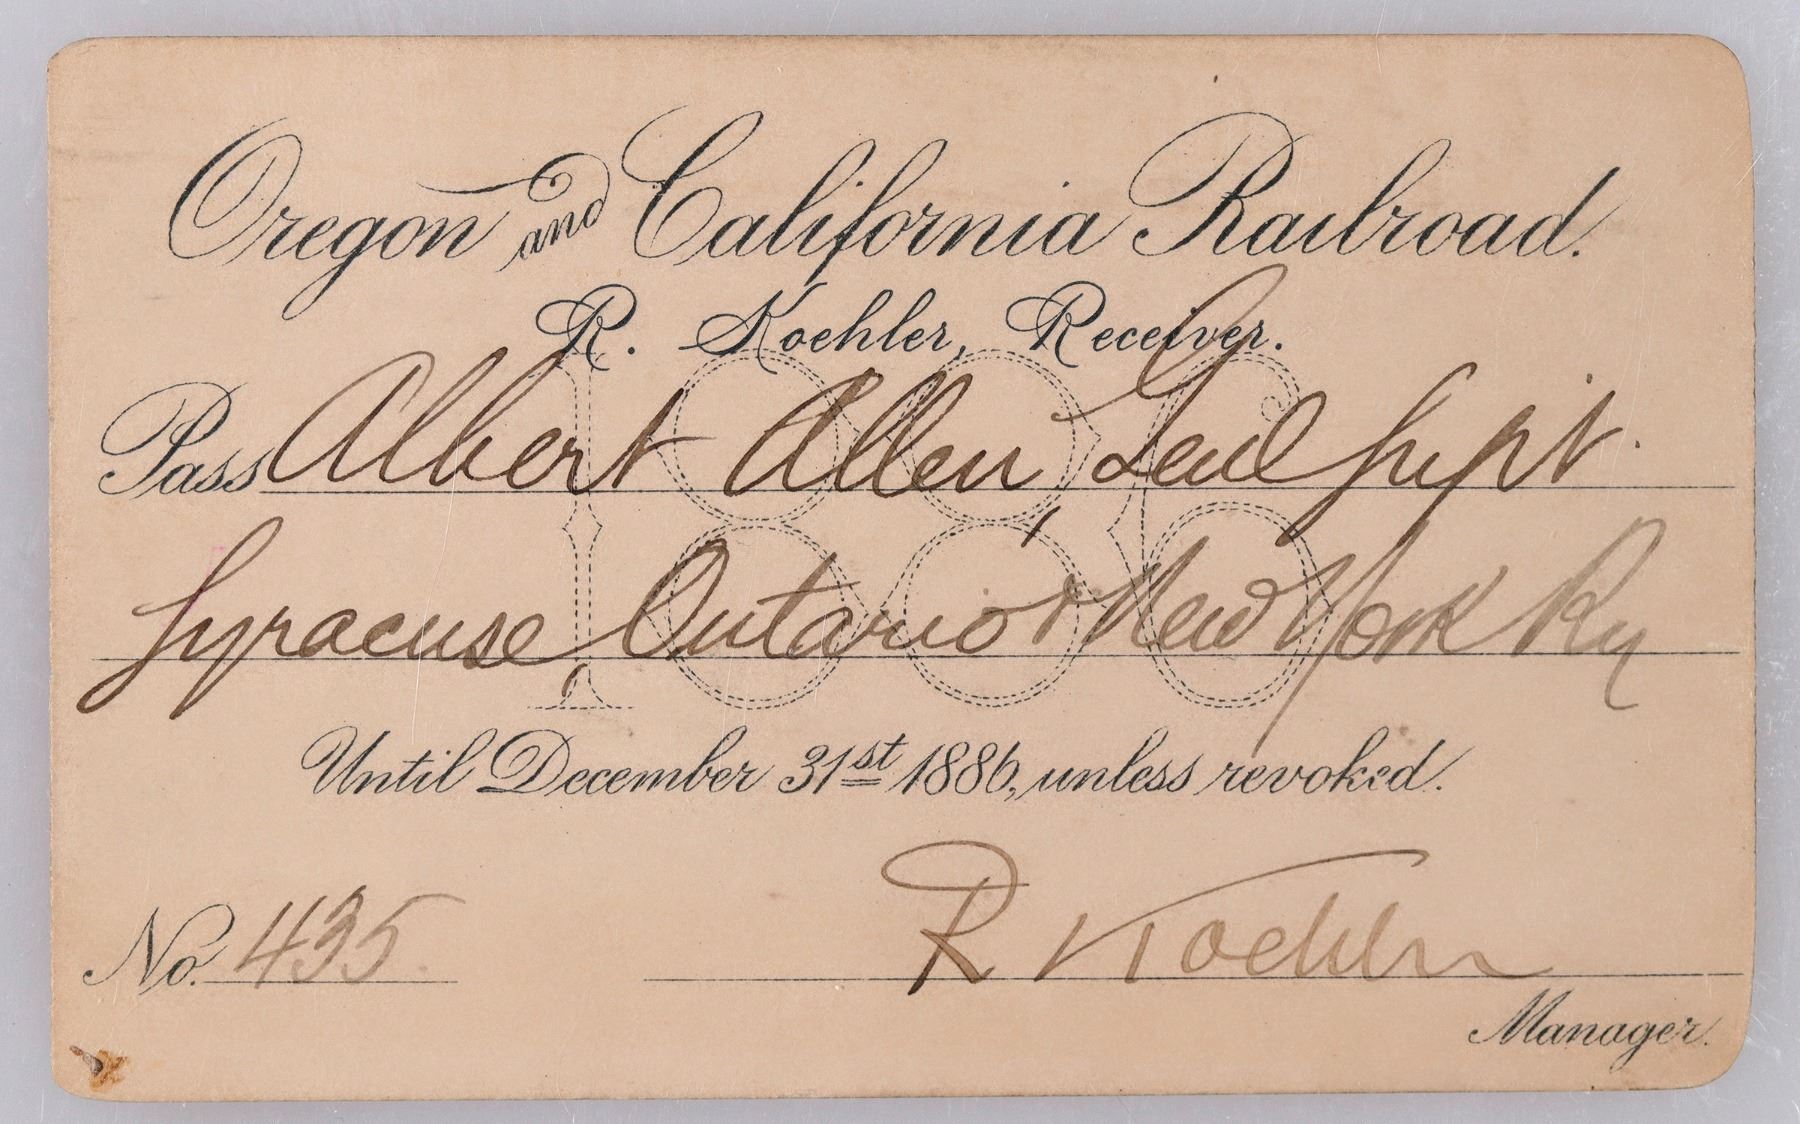 Oregon and California Railroad.
R. Koehler, Receiver.
1886
Pass Albert Allen Genl Supt.
Syracuse, Ontario & New York Ry
Until December 31st 1886, unless revoked.
No. 435
R Koehler
Manager.